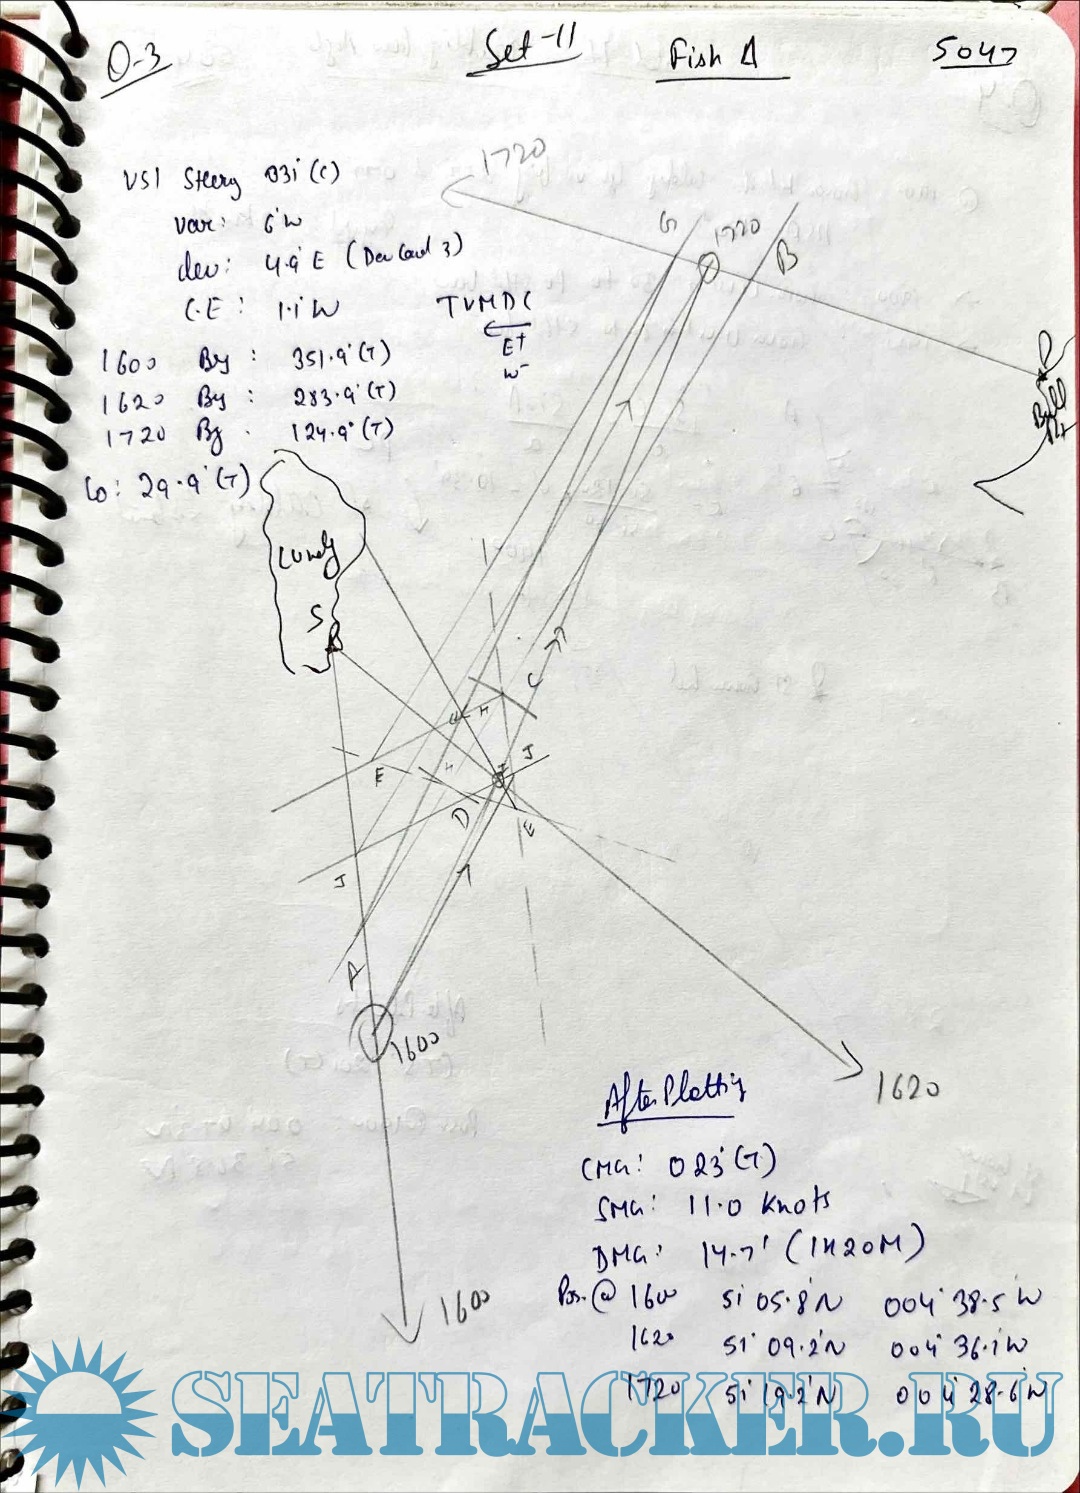 Q-3
Set-11
Fish Δ
5047
1720
VSl Steering 031°(C)
Var: 6°W
dev: 4.9°E (Dev Card 3)
C.E: 1.1°W
TVMDC
E+
W-
1600 Brg : 351.9°(T)
1620 Brg : 283.9°(T)
1720 Brg : 124.9°(T)
Co: 29.9°(T)
G
1720
B
Bull
Pt
Lundy
S
C
H
E
H
J
D
E
J
A
1600
1620
1600
After Plotting
CMG: 023°(T)
SMG: 11.0 Knots
DMG: 14.7' (1H20M)
Pos. @ 1600 51°05.8'N 004°38.5'W
1620 51°09.2'N 004°36.1'W
1720 51°19.2'N 004°28.6'W
SEATRACKER.RU